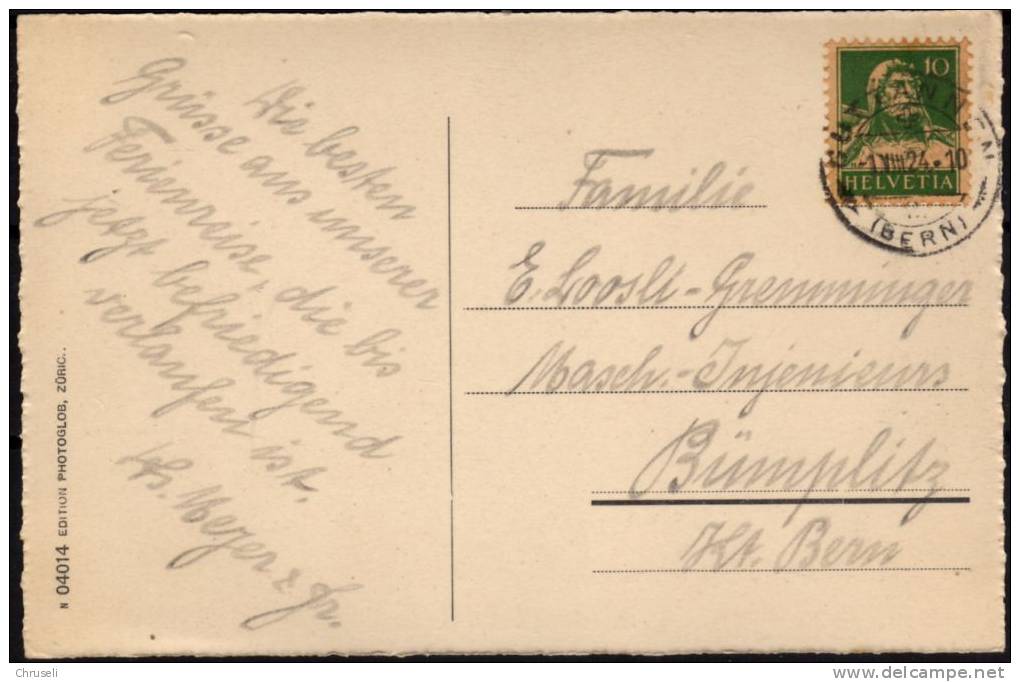 Die besten
Grüsse aus unserer
Ferienreise, die bis
jetzt befriedigend
verlaufen ist.
Meyer & Fr.
N 04014 EDITION PHOTOGLOB, ZÜRIC
10
HELVETIA
-1.VIII.24.-10
(BERN)
Familie
E. Loosli-Gremminger
Masch.-Injenieurs
Bümplitz
Kt. Bern
Chruseli
www.delcampe.net